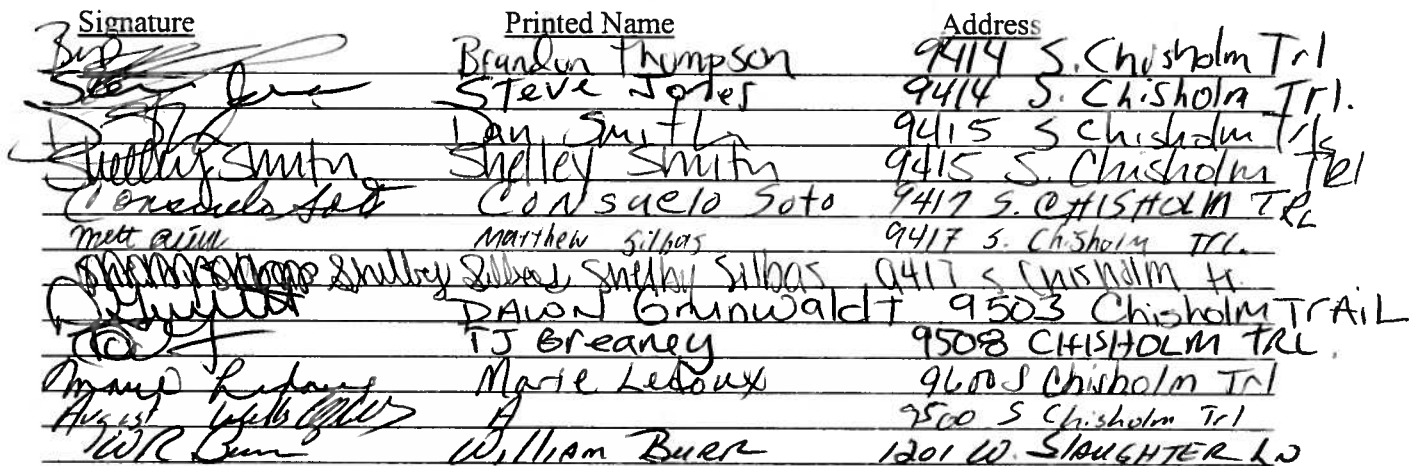 Signature Printed Name Address
Brandon Thompson 9414 S. Chisholm Trl
Steve Jones 9414 S. Chisholm Trl.
Dan Smith 9415 S Chisholm Trls
Shelley Smith Shelley Smith 9415 S. Chisholm Trl
Consuelo Soto Consuelo Soto 9417 S. CHISHOLM TRL
Matthew Silbas 9417 S. Chisholm Trl.
Shelby Silbas Shelby Silbas 9417 S Chisholm tr.
DAWN Grunwaldt 9503 Chisholm TrAiL
TJ Greaney 9508 CHISHOLM TRL.
Marie Ledoux Marie Ledoux 9600 S Chisholm Trl
August A 9500 S Chisholm Trl
WR Burr William Burr 1201 W. SLAUGHTER LN